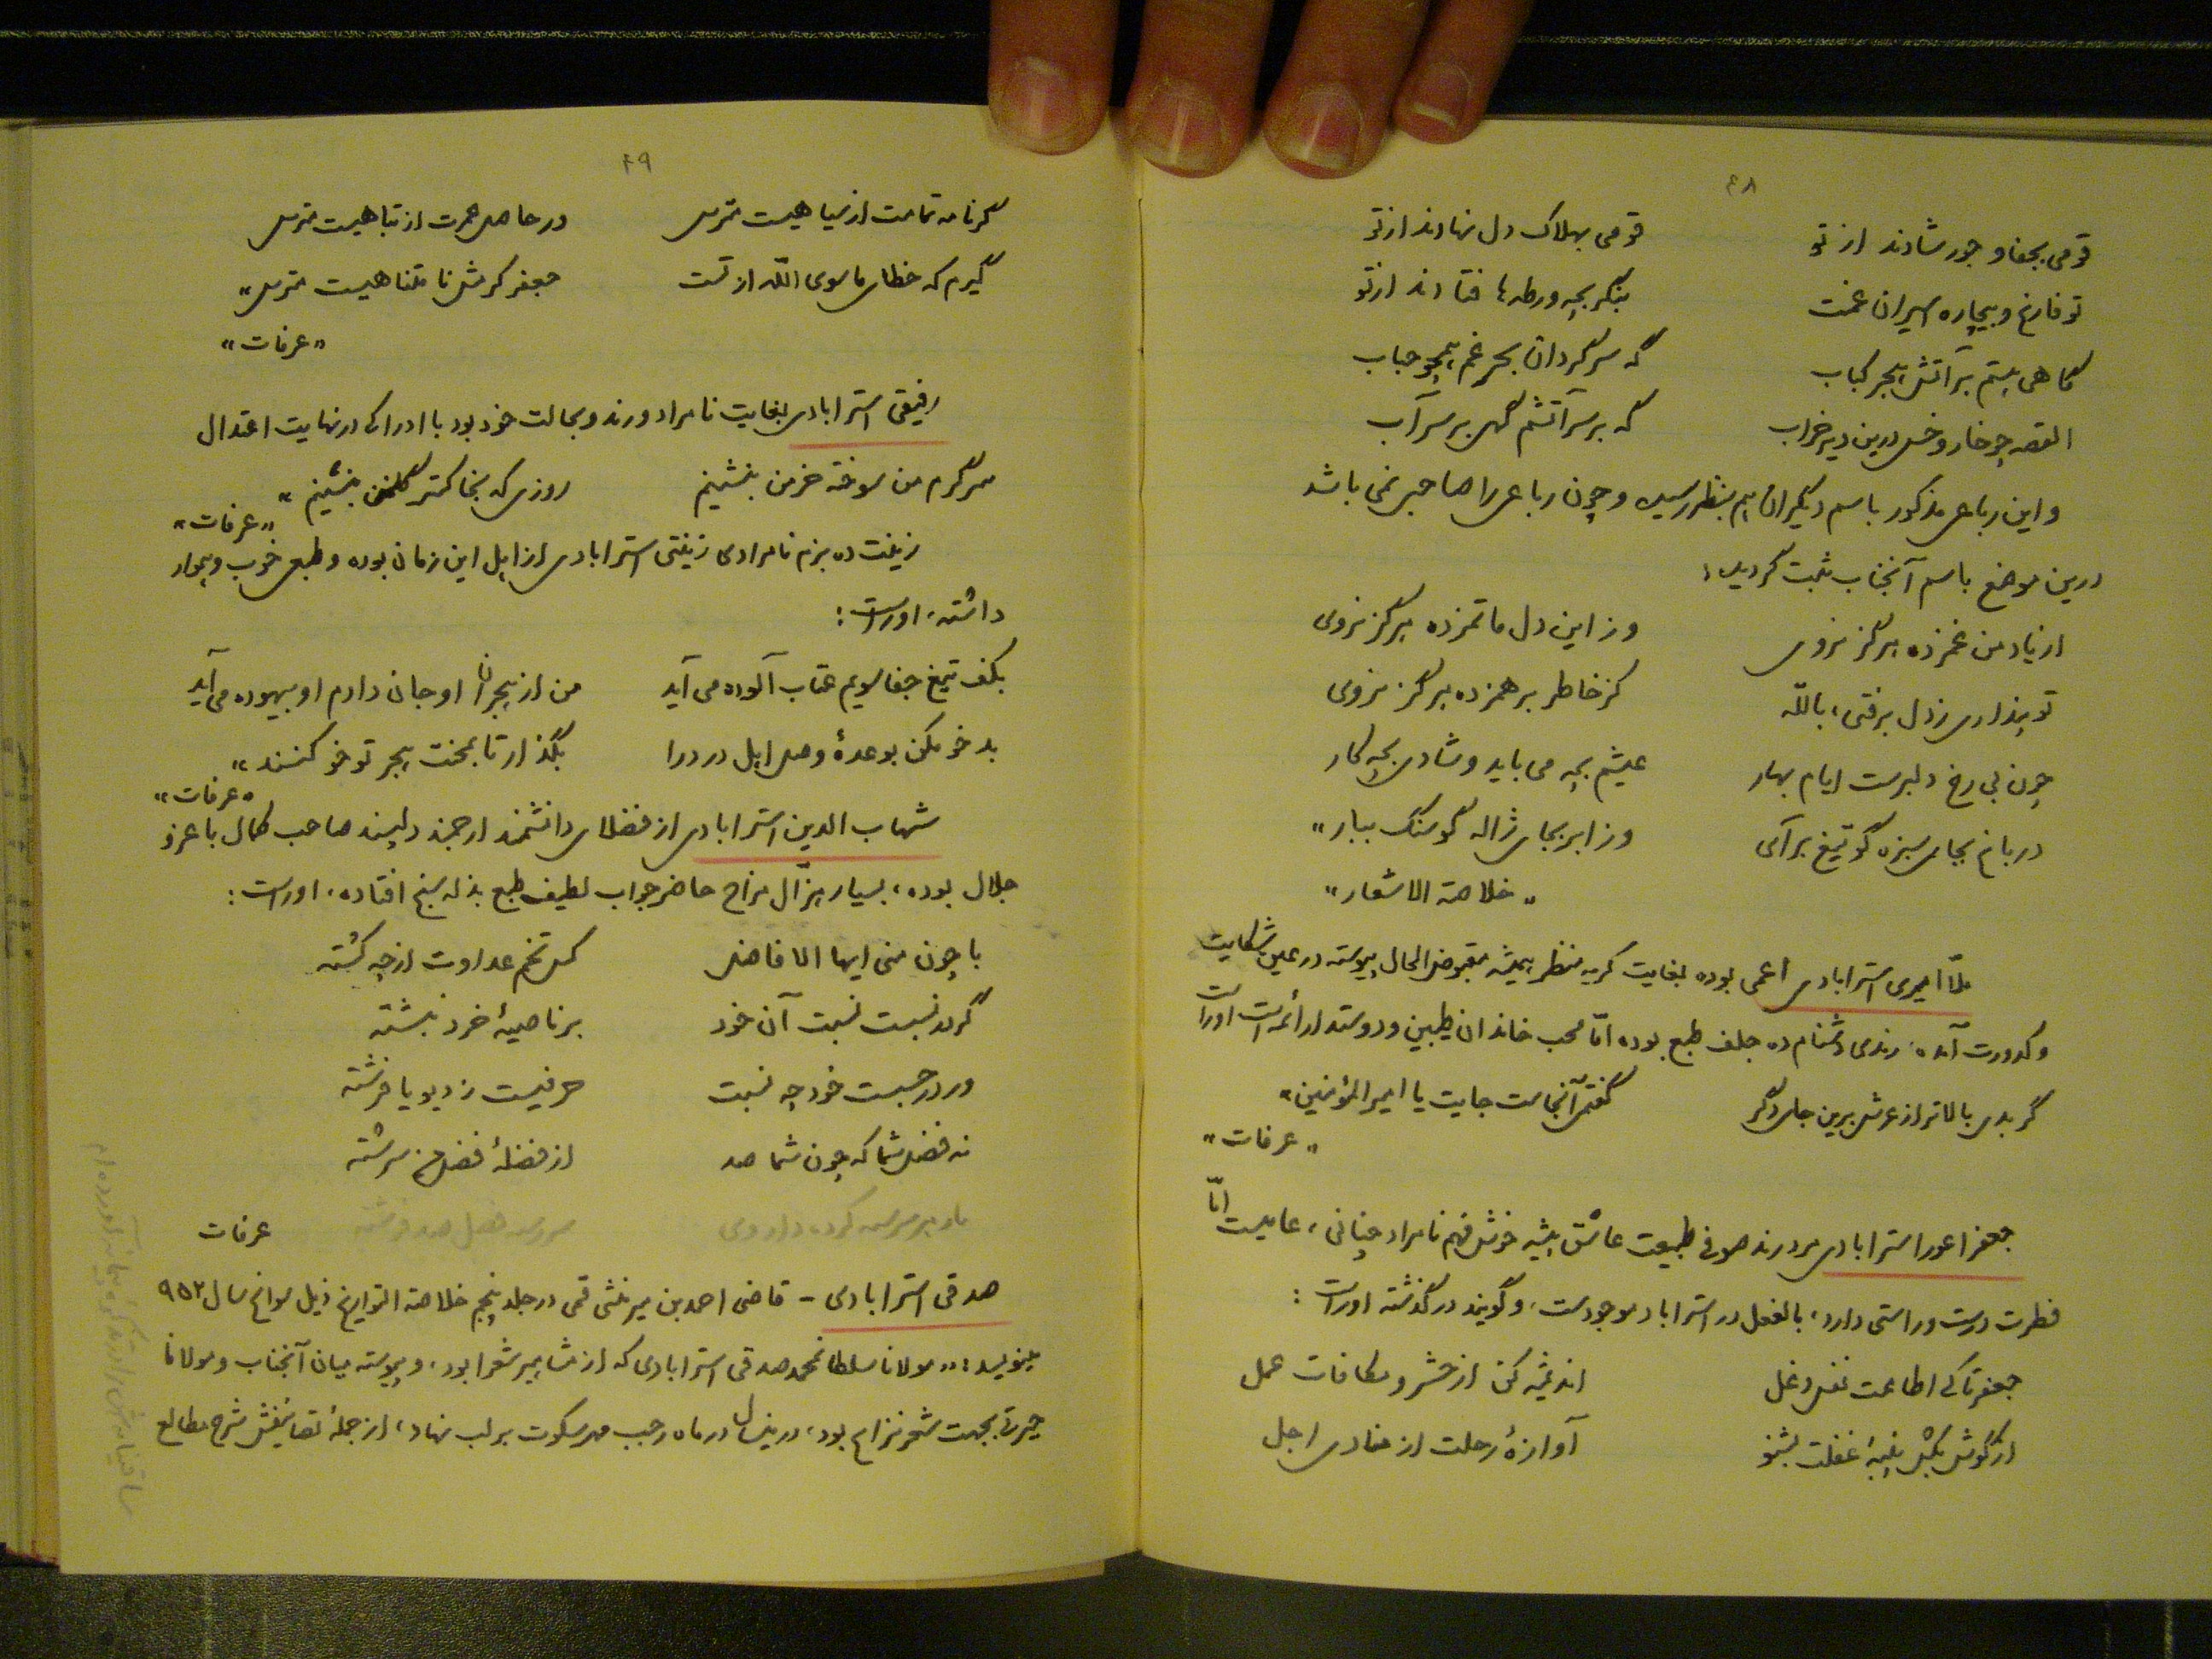 ۴۸
قومی بجفا و جور شادند از تو قومی بهلاک دل نهادند از تو
تو فارغ و بیچاره اسیران غمت بنگر بچه ورطه‌ها فتادند از تو
گاهی بستم بر آتش هجر کباب گه سرگردان بحر غم همچو حباب
القصه چو خار و خس درین دیر خراب گه بر سر آتشم گهی بر سر آب
و این رباعی مذکور باسم دیگران هم بنظر رسیده و چون رباعی را صاحبی نمی باشد
درین موضع باسم آنجناب ثبت گردید:
از یاد من غمزده هرگز نروی وز این دل ماتمزده هرگز نروی
تو پنداری ز دل برفتی، بالله کز خاطر برهمزده هرگز نروی
چون بی رخ دلبرست ایام بهار عیشم بچه می باید و شادی بچه کار
در باغ بجای سبزه گو تیغ برآی وز ابر بجای ژاله گو سنگ ببار"
"خلاصة الاشعار"
ملّا امیری استرابادی اعمی بوده بغایت کریه منظر همیشه مقبوض الحال پیوسته در عین شکایت
و کدورت آمده، رندی دشنام ده جلف طبع بوده امّا محب خاندان طیبین و دوستدار ائمه است اوراست
گر بدی بالاتر از عرش برین جای دگر گفتمی آنجاست جایت یا امیر المؤمنین"
"عرفات"
جعفر اعور استرابادی مرد رند صوفی طبیعت عاشق پیشه خوش فهم نامراد چنانی، عامیست امّا
فطرت درست و راستی دارد، بالفعل در استراباد موجودست، و گویند درگذشته اوراست:
جعفر تا کی اطاعت نفس دغل اندیشه کن از حشر و مکافات عمل
از گوش بکش پنبهٔ غفلت بشنو آوازهٔ رحلت از منادی اجل
۴۹
گر نامه تمامت از سیاهیست مترس ور حاصل عمرت از تباهیست مترس
گیرم که خطای ماسوی اللّه از تست جعفر کرمش نامتناهیست مترس"
"عرفات"
رفیقی استرابادی بغایت نامراد و رند و بحالت خود بود با ادراکی در نهایت اعتدال
سرگرم من سوخته خرمن بنشینم روزی که بخاکستر گلخن بنشینم"
"عرفات"
زینت ده بزم نامرادی زینتی استرابادی از اهل این زمان بوده و طبعی خوب و هموار
داشته، اوراست:
بکف تیغ جفا سویم عتاب آلوده می آید من از هجران او جان دارم او بیهوده می آید
بدخو مکن بوعدهٔ وصل اهل درد را بگذار تا بمحنت هجر تو خو کنند"
"عرفات"
شهاب الدین استرابادی از فضلای دانشمند ارجمند دلپسند صاحب کمال با عز و
جلال بوده، بسیار هزّال مزاج حاضر جواب لطیف طبع بذله سنج افتاده، اوراست:
با چون منی ایها الافاضل کس تخم عداوت از چه کشته
گر در نسبست نسبت آن خود بر ناصیهٔ خرد نبشته
ور در حسبست خود چه نسبت حرفیست ز دیو یا فرشته
نه فضل شما که چون شما صد از فضلهٔ فضل من سرشته
عرفات
صدقی استرابادی - قاضی احمد بن میر منشی قمی در جلد پنجم خلاصة التواریخ ذیل سوانح سال ۹۵۲
مینویسد: "مولانا سلطان محمد صدقی استرابادی که از مشاهیر شعرا بود، و پیوسته میان آنجناب و مولانا
حیرتی بجهت شعر نزاع بود، درین سال در ماه رجب مهر سکوت بر لب نهاد، از جملهٔ تصانیفش شرح مطالع